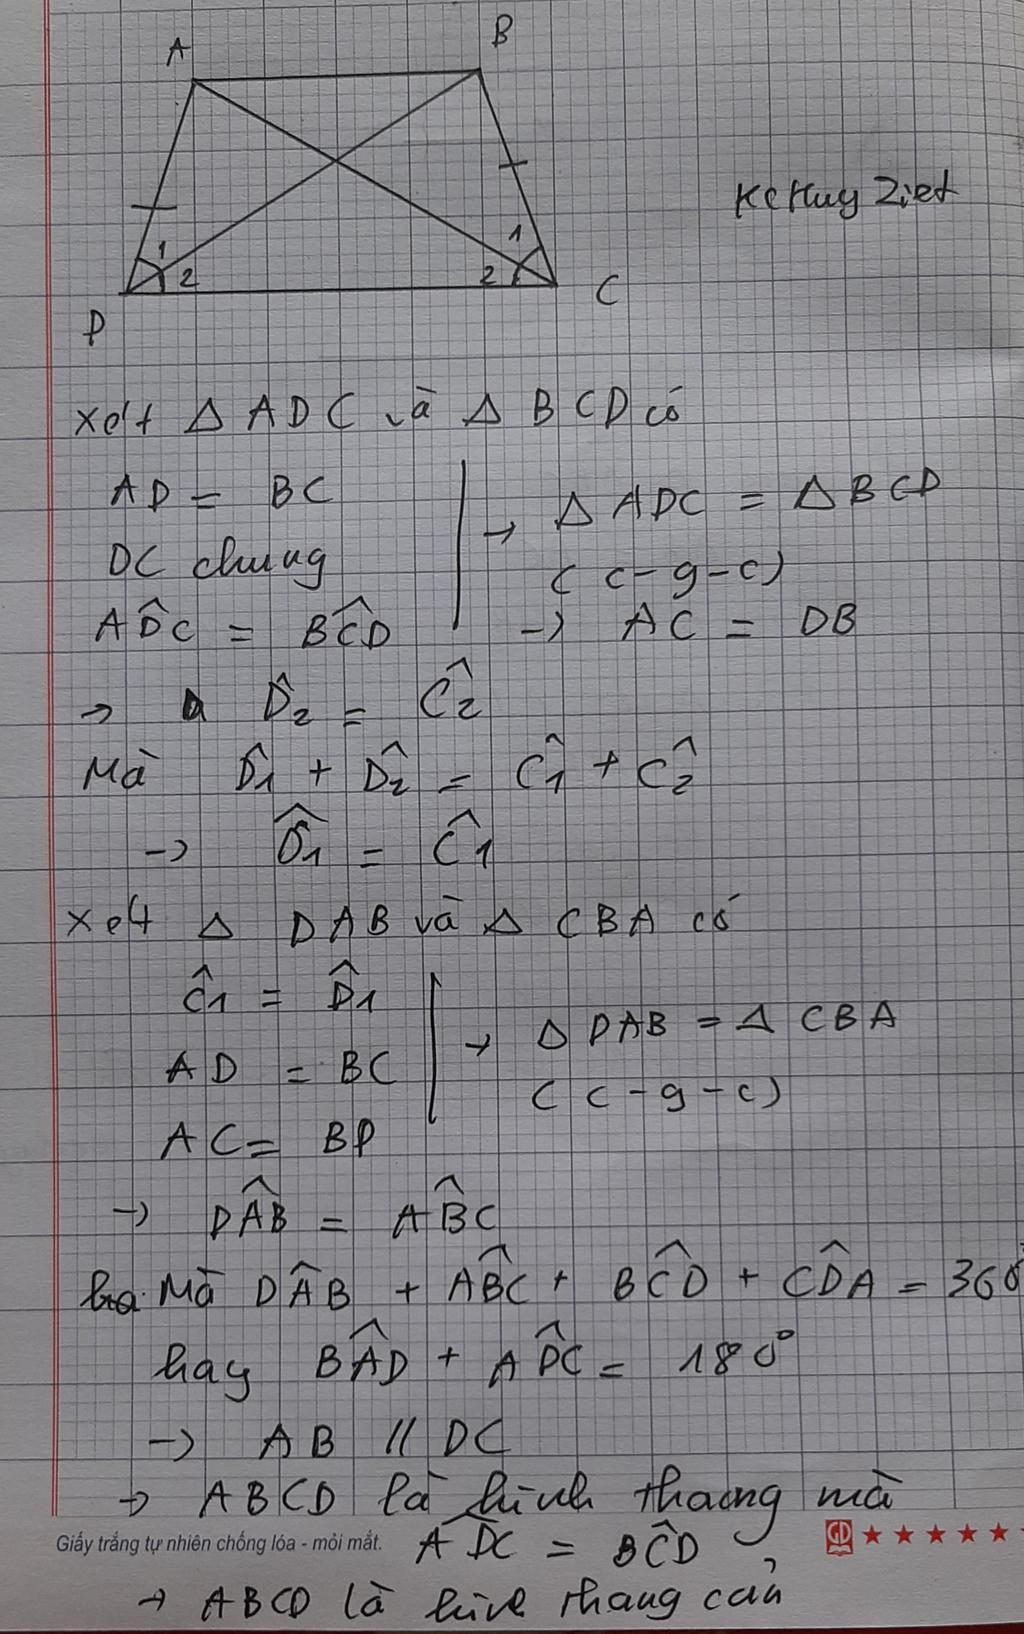 A
B
1
1
2
2
D
C
Xét Δ ADC và Δ BCD có
AD = BC
DC chung
→ Δ ADC = Δ BCD
(c-g-c)
AD̂C = BĈD
→ AC = DB
→ D̂2 = Ĉ2
Mà D̂1 + D̂2 = Ĉ1 + Ĉ2
→ D̂1 = Ĉ1
Xét Δ DAB và Δ CBA có
Ĉ1 = D̂1
AD = BC
AC = BD
→ Δ DAB = Δ CBA
(c-g-c)
→ DÂB = AB̂C
Mà DÂB + AB̂C + BĈD + CD̂A = 360°
hay BÂD + AD̂C = 180°
→ AB // DC
→ ABCD là hình thang mà
Giấy trắng tự nhiên chống lóa - mỏi mắt.
AD̂C = BĈD
GD
→ ABCD là hình thang cân